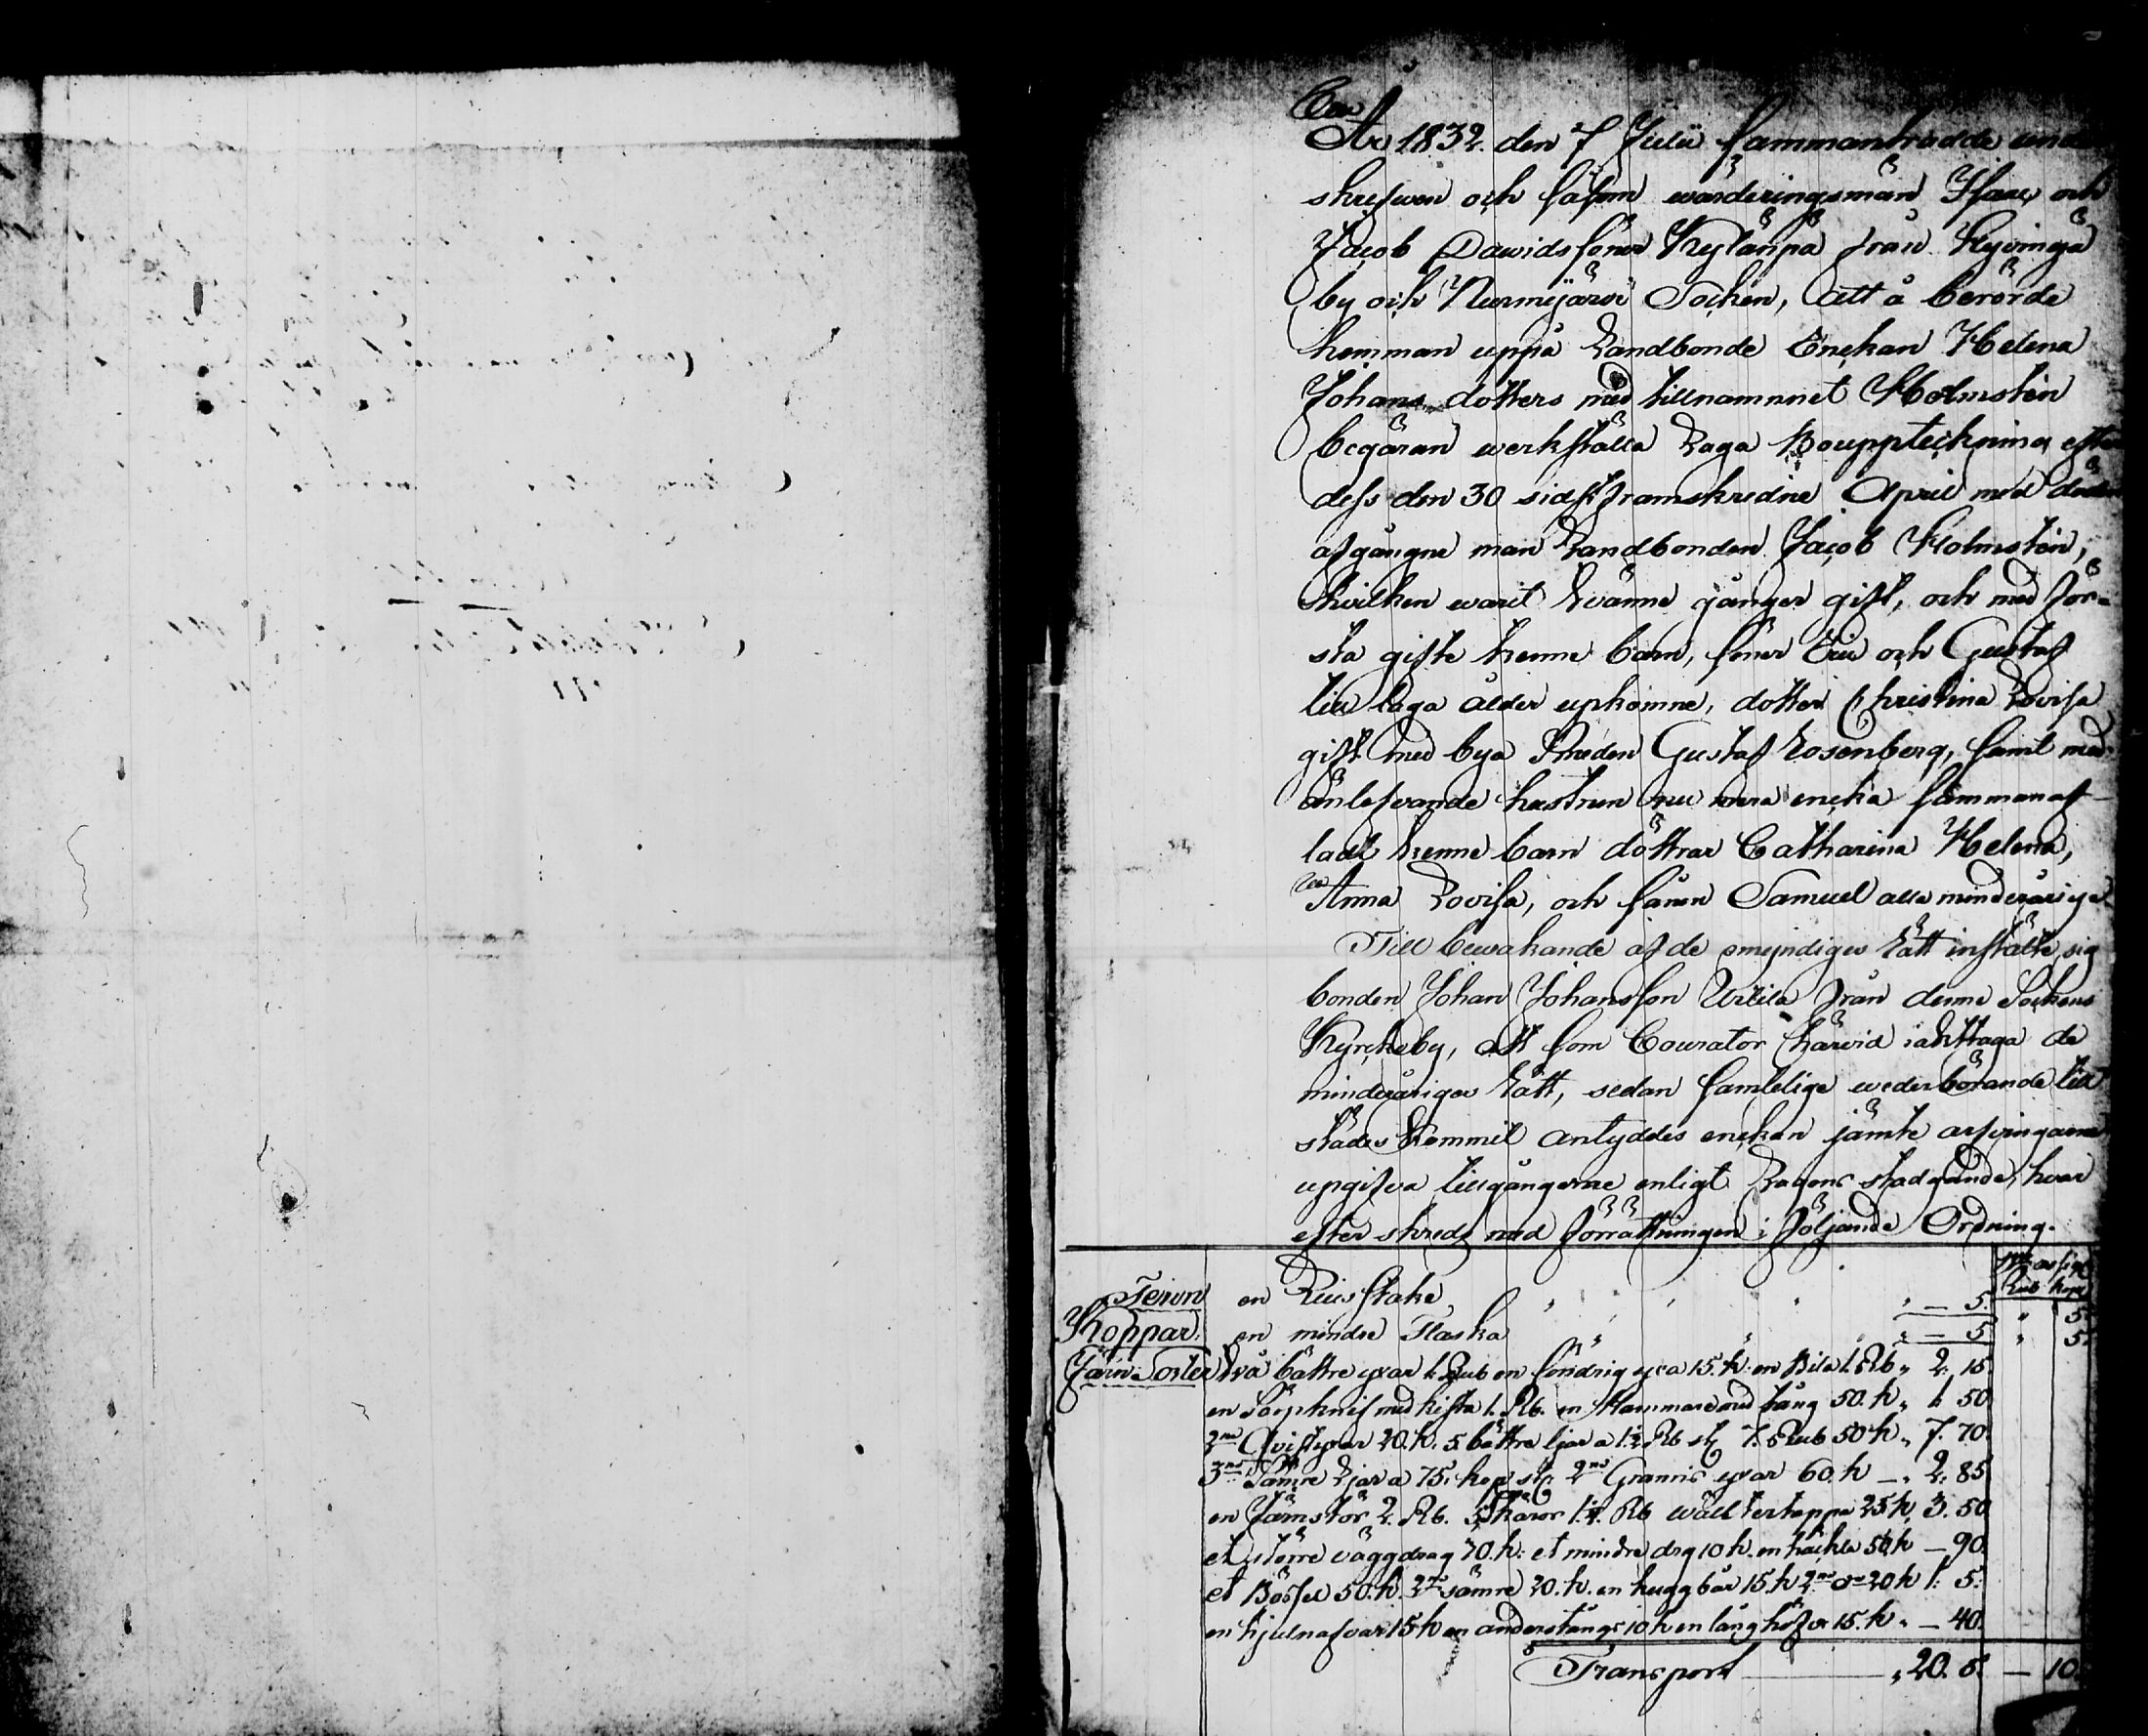 År 1832 den 7 Julii sammanträdde under
skrefwen och såsom wärderingsmän Isaac och
Jacob Dawidsöner Kytänpä från Hyvingä
by och Nurmijärwi Socken, att å berörde
hemman uppå Landbonde Enckan Helena
Johans dotters med tillnamnet Holmsten
begäran werkställa Laga Bouppteckning efter
dess den 30 sidst framskredne April med döden
afgångne man Landbonden Jacob Holmsten,
hvilken warit tvänne gånger gift, och med för-
sta gifte trenne barn, söner Eric och Gustaf
till laga ålder upkomne, dotter Christina Lovisa
gift med bya Smeden Gustaf Rosenberg, samt med
änlefvande hustrun nu mera encka samman af-
ladt trenne barn döttrar Catharina Helena,
Anna Lovisa, och sånen Samuel alla minderåriga
Till bewakande af de omyndigas rätt instälte sig
bonden Johan Johansson Uxila från denne Sockens
Kyrckeby, att som Courator härvid iakttaga de
minderårigas rätt, sedan samtelige wederbörande till
städes kommit antyddes enckan jämte arfvingarne
upgifva tillgångerne enligt Lagens stadgande, hvar
efter skreds med förrättningen i följande Ordning.
Rub Kop
Tenn en Liusstake - 5. " 5.
Koppar. en mindre Flaska - 5 " 5.
Järn Sorter två bättre yxar 1. Rub en söndrig yxa 15. k. en Bila 1. Rb " 2. 15.
en Sårpknif med kista 1. Rb. en Hammare med tång 50. k " 1. 50
2ne Qvistyxar 20. k. 5 bättre liar a 1 1/2 Rb st 7. Rub 50 k " 7. 70.
3ne Sämre Liar a 75. kop st 2ne Grannis yxar 60. k - " 2. 85
en Järnstör 2. Rb. 5 Skäror 1 1/4 Rb wäll tertappa 25 k 3. 50
et större väggdrag 30. k. et mindre drg 10 k. en häckla 50 k - 90.
et Bössel 50. k. 2ne sämre 20. k. en huggbår 15. k 2ne do 20 k 1. 5.
en hjulnafvar 15 k en anderstångs 10 k en lång höfvel 15. k " - 40.
Transport " 20. 5. - 10.